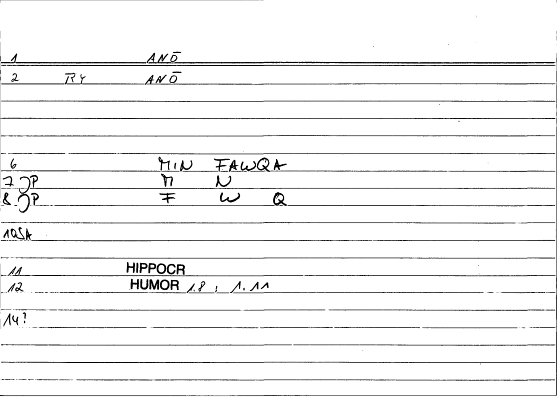 1 ANŌ
2 RY ANŌ
6 MIN FAWQA
7 P M N
8 P F W Q
1QSA
11 HIPPOCR
12 HUMOR 1.8 ; 1.11
14?